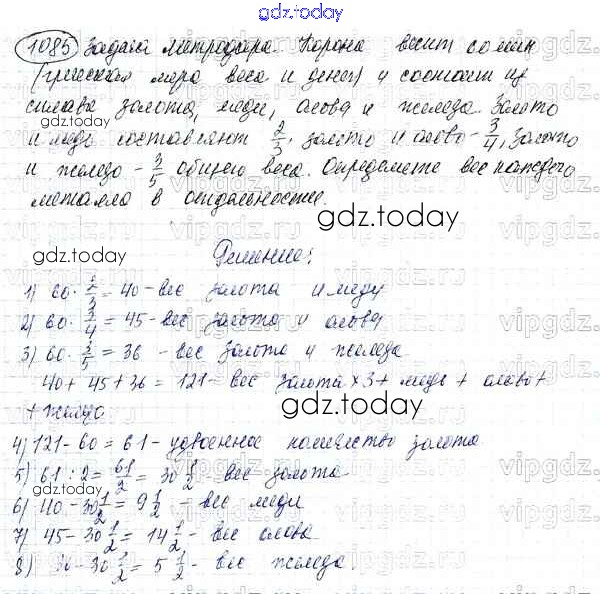 gdz.today
1085) Задача Метродора. Корона весит 60 мин
(греческая мера веса и денег) и состоит из
сплава золота, меди, олова и железа. Золото
и медь составляют 2/3, золото и олово - 3/4, золото
и железо - 3/5 общего веса. Определите вес каждого
металла в отдельности.
gdz.today
gdz.today
Решение:
1) 60 · 2/3 = 40 - вес золота и меди
2) 60 · 3/4 = 45 - вес золота и олова
3) 60 · 3/5 = 36 - вес золота и железа
40 + 45 + 36 = 121 - вес золота × 3 + медь + олово +
+ железо
gdz.today
4) 121 - 60 = 61 - удвоенное количество золота
5) 61 : 2 = 61/2 = 30 1/2 - вес золота
gdz.today
6) 40 - 30 1/2 = 9 1/2 - вес меди
7) 45 - 30 1/2 = 14 1/2 - вес олова
8) 36 - 30 1/2 = 5 1/2 - вес железа.